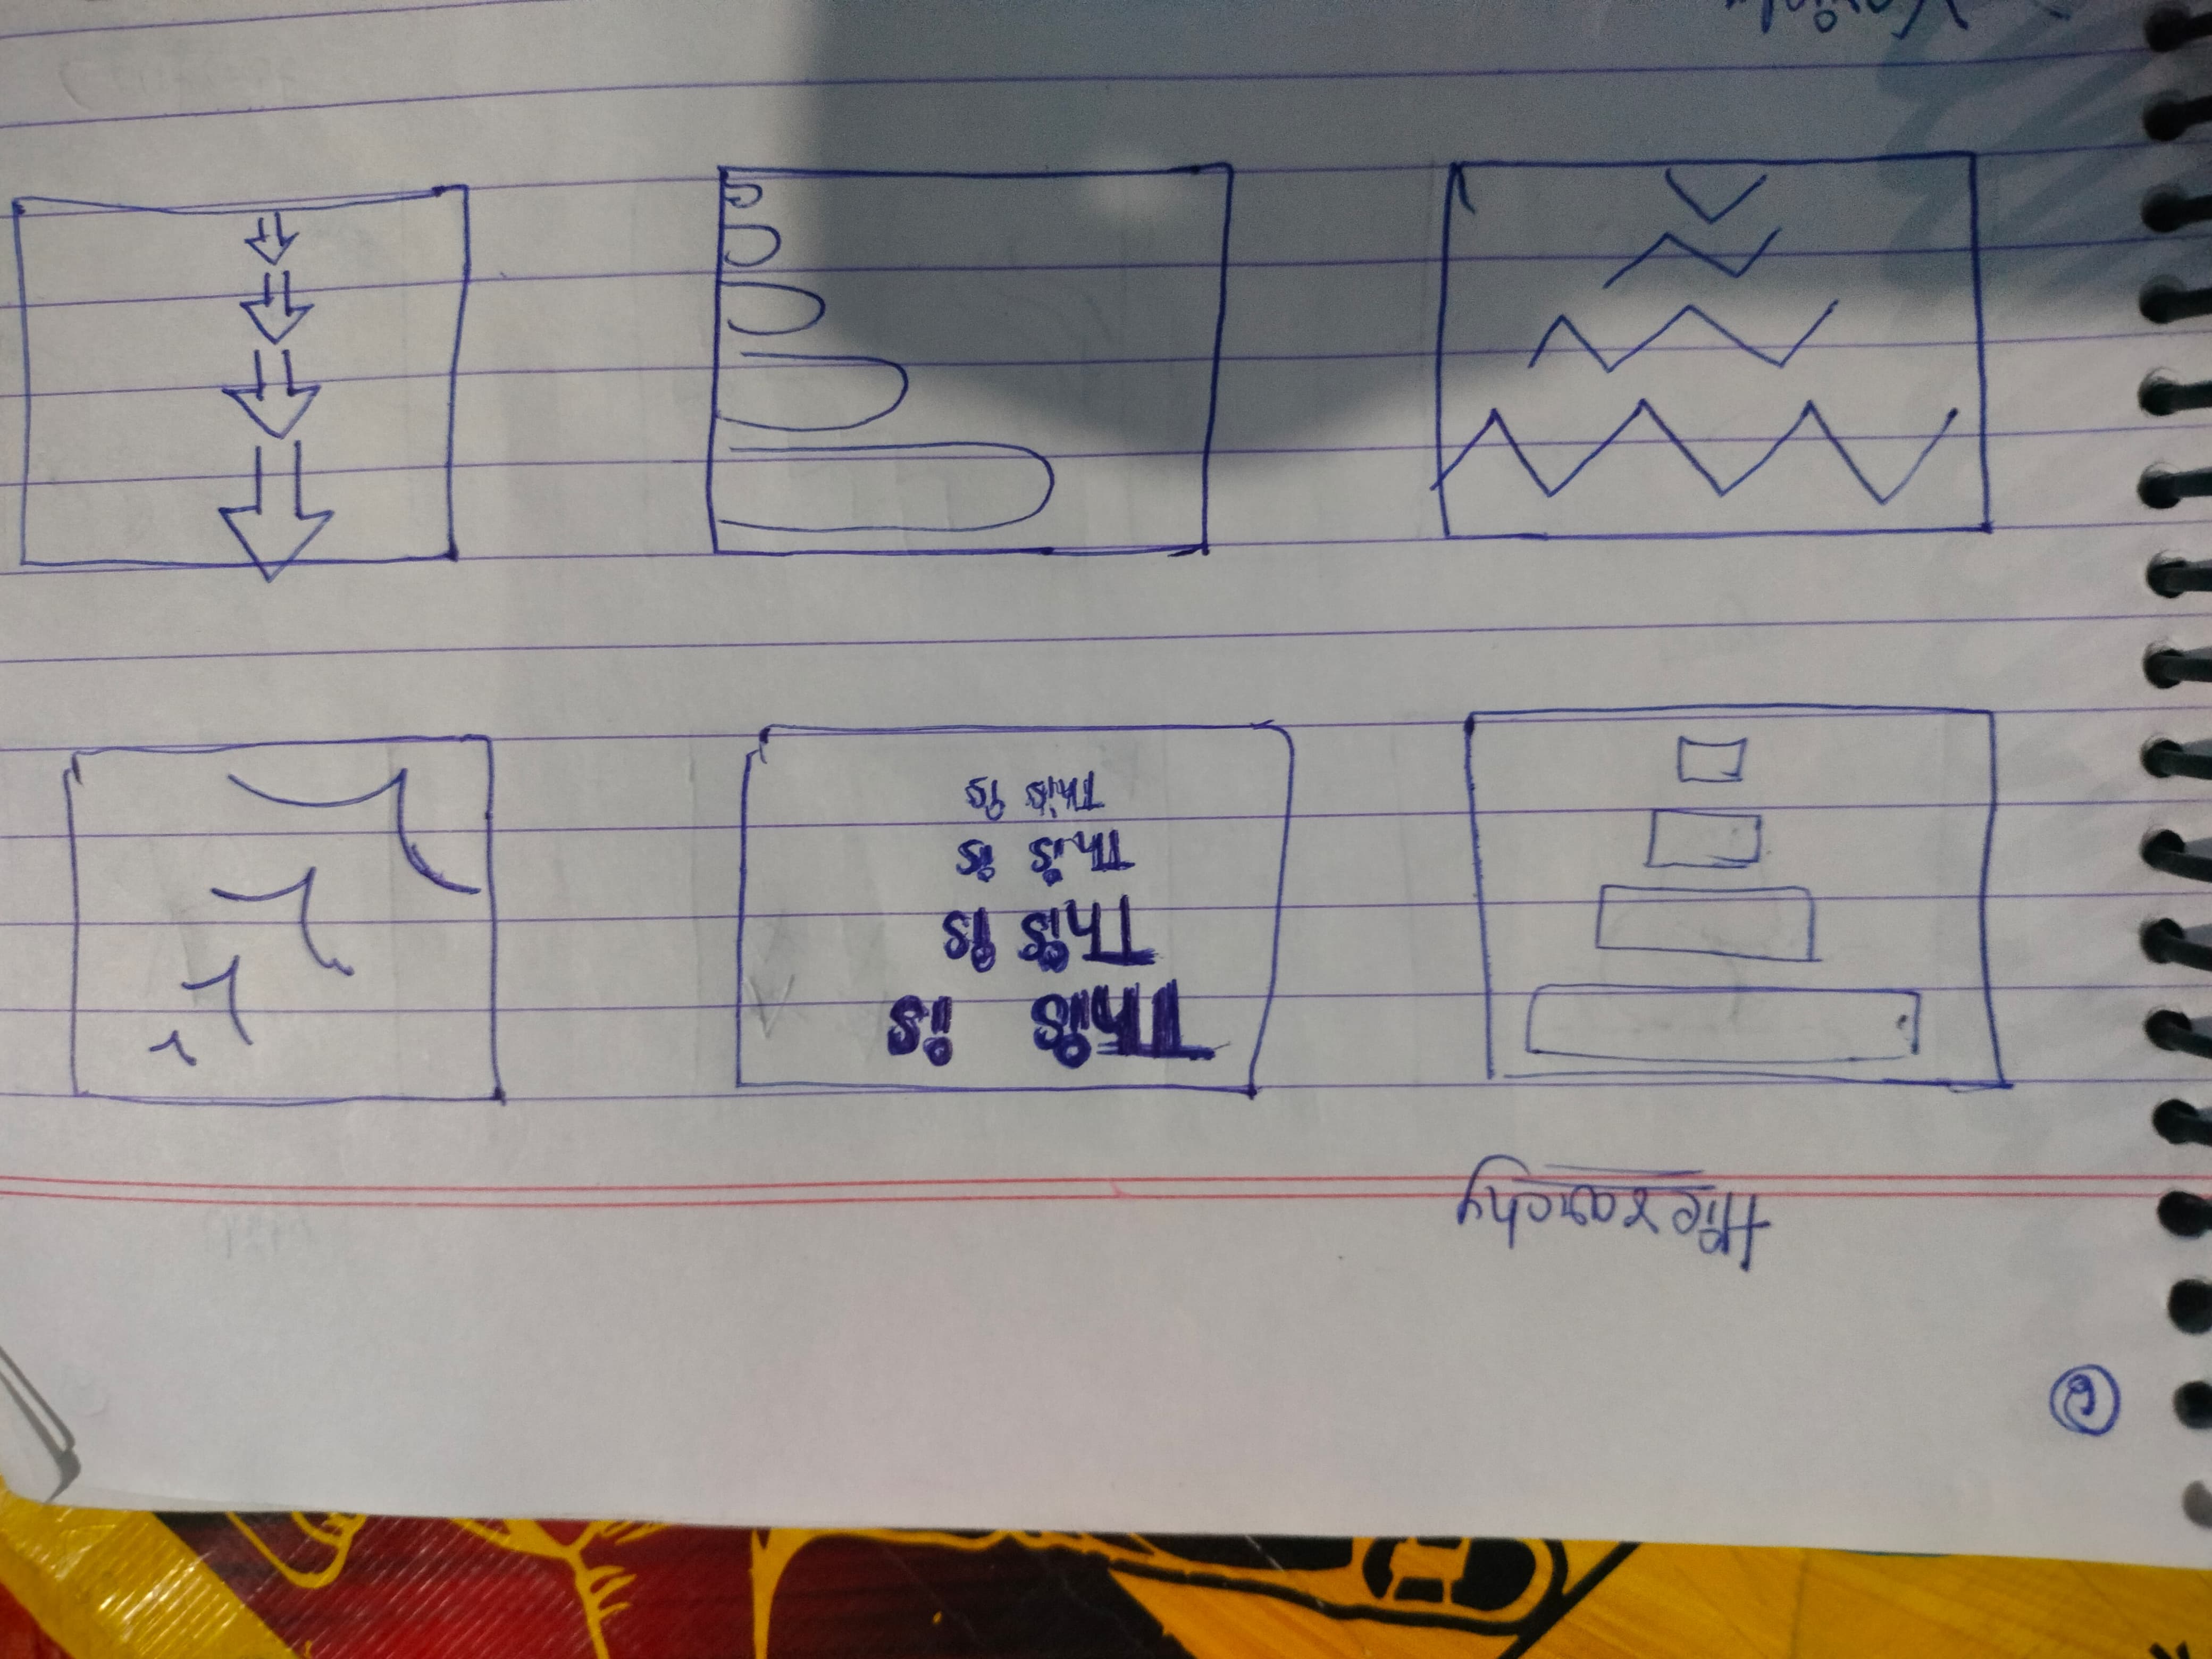 Hierarchy
This is
This is
This is
This is